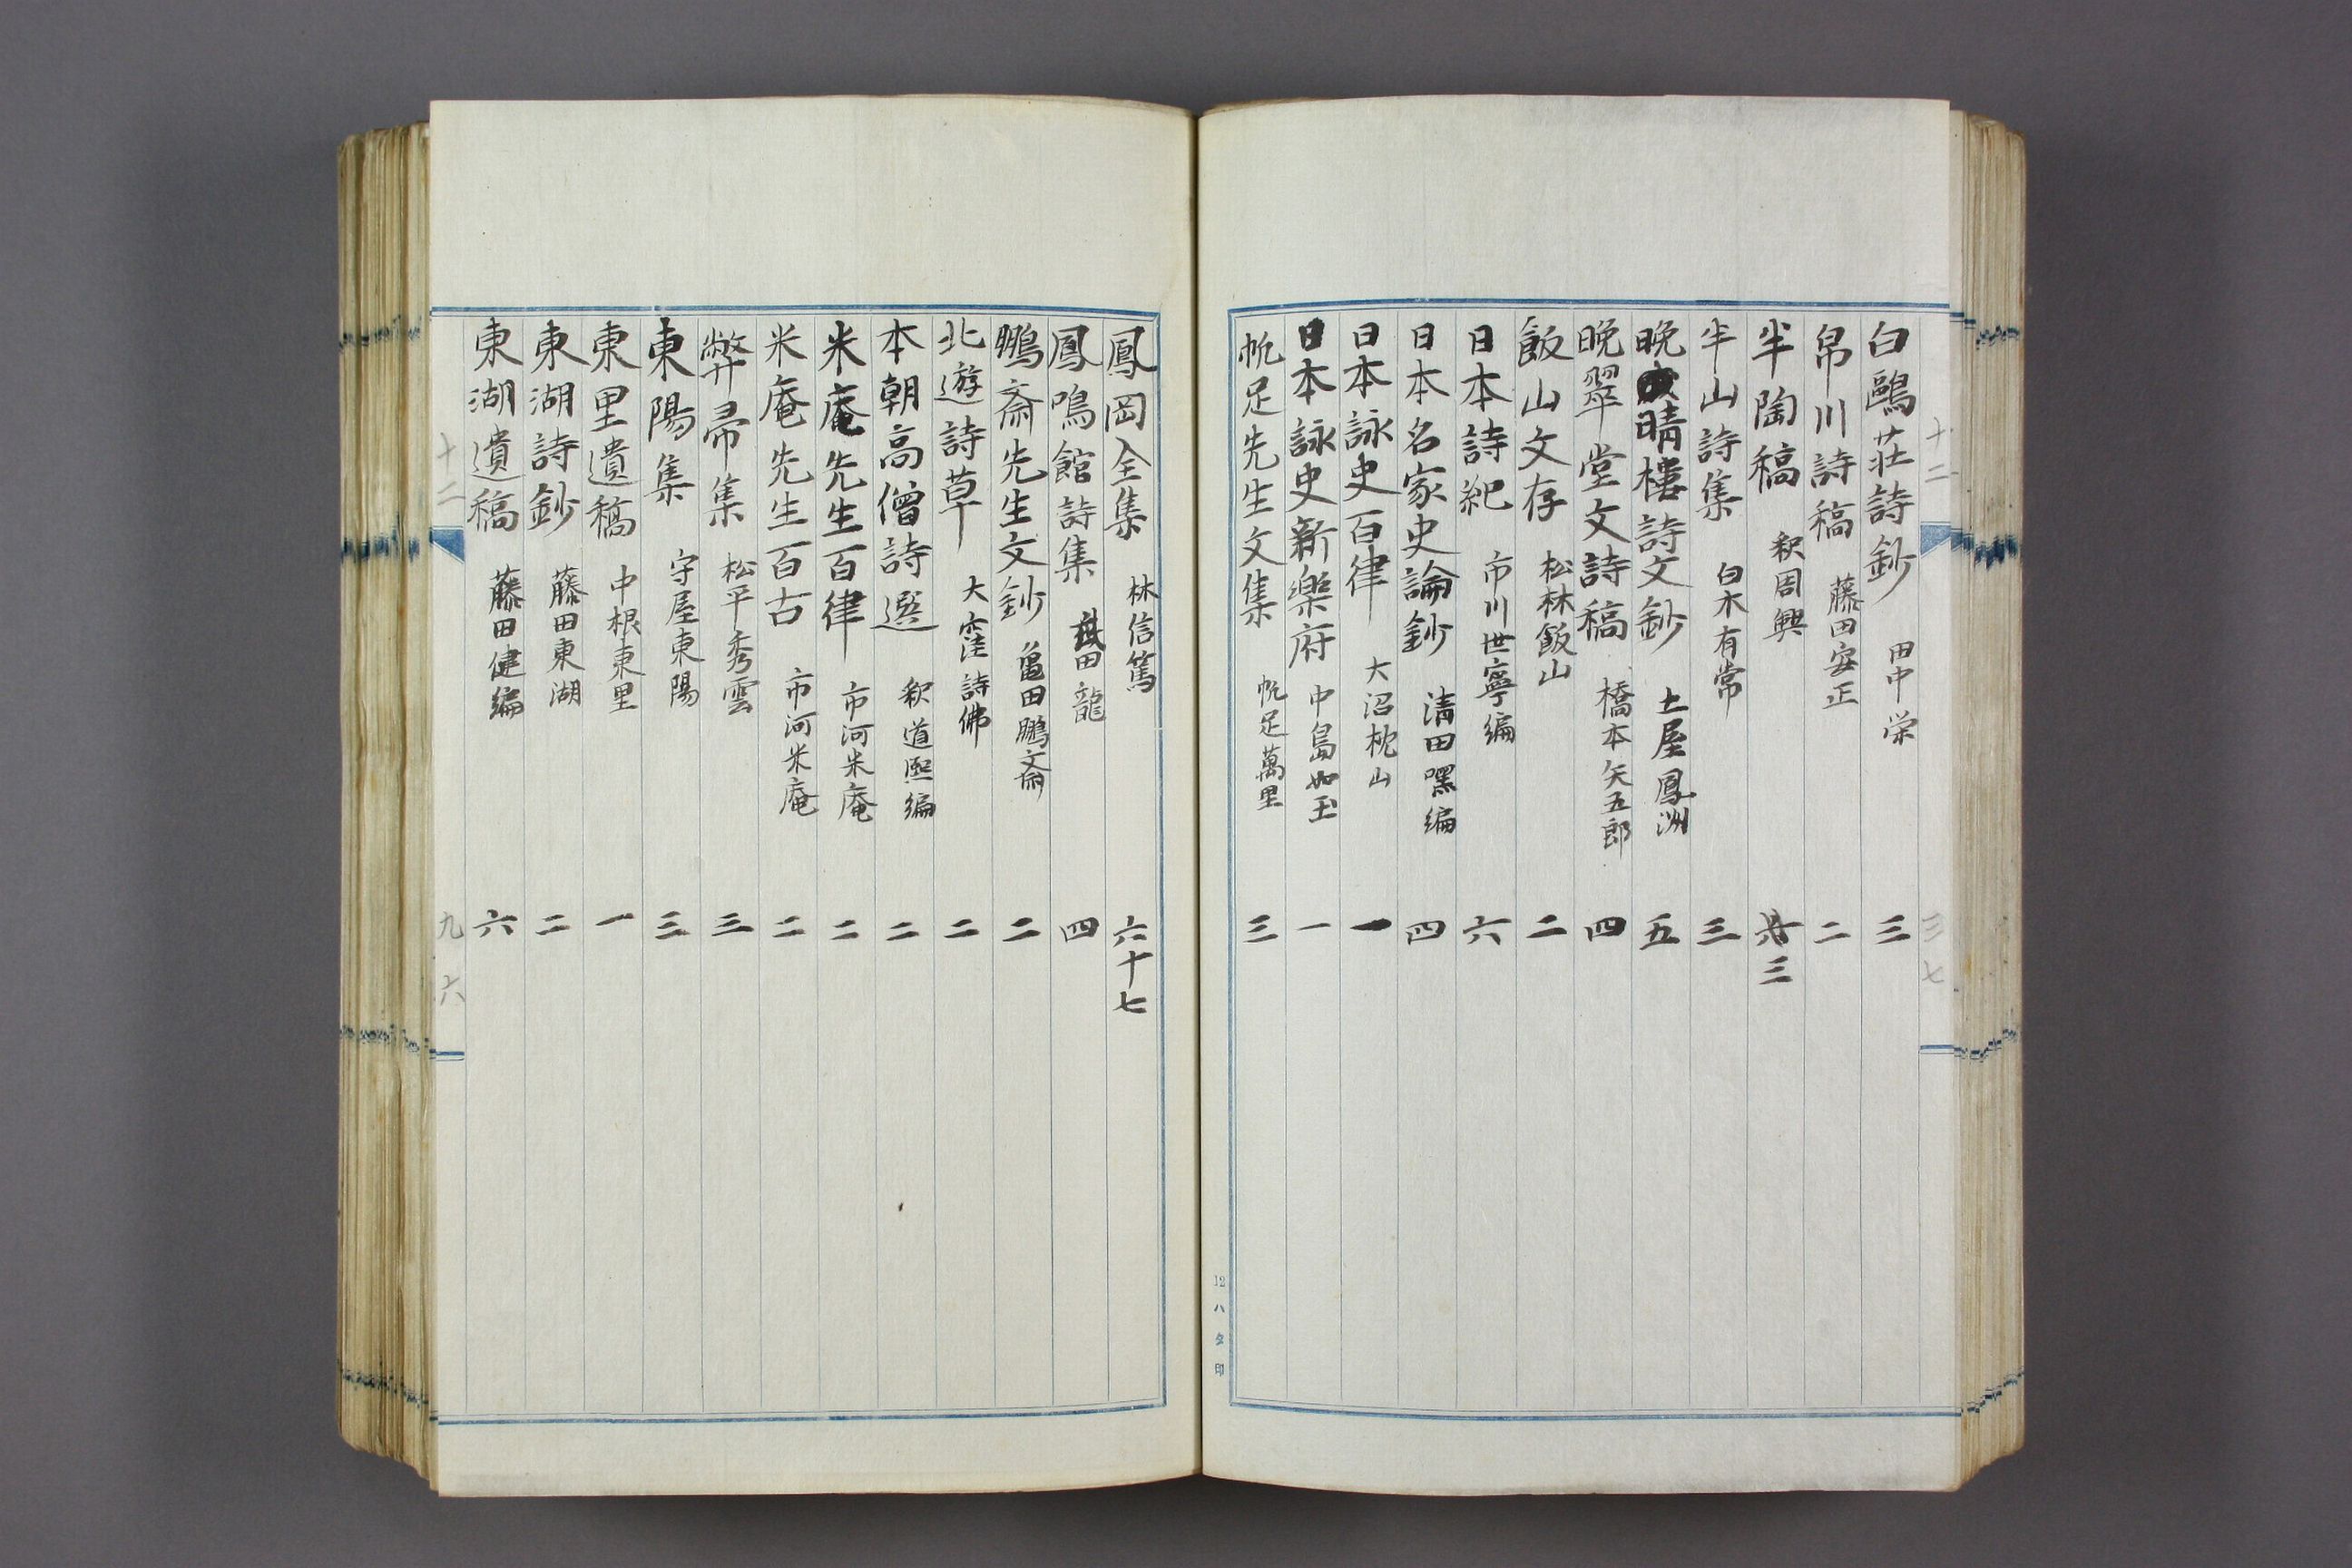 十二 三七
白鷗荘詩鈔 田中栄 三
帛川詩稿 藤田安正 二
半陶稿 釈周興 三
半山詩集 白木有常 三
晩晴樓詩文鈔 土屋鳳洲 五
晩翠堂文詩稿 橋本矢五郎 四
飯山文存 松林飯山 二
日本詩紀 市川世寧編 六
日本名家史論鈔 清田嘿編 四
日本詠史百律 大沼枕山 一
日本詠史新楽府 中島如玉 一
帆足先生文集 帆足萬里 三
12ハタ印
鳳岡全集 林信篤 六十七
鳳鳴館詩集 田龍 四
鵬斎先生文鈔 亀田鵬斎 二
北遊詩草 大窪詩佛 二
本朝高僧詩選 釈道熙編 二
米庵先生百律 市河米庵 二
米庵先生百古 市河米庵 二
弊帚集 松平秀雲 三
東陽集 守屋東陽 三
東里遺稿 中根東里 一
東湖詩鈔 藤田東湖 二
東湖遺稿 藤田健編 六
十二 九六